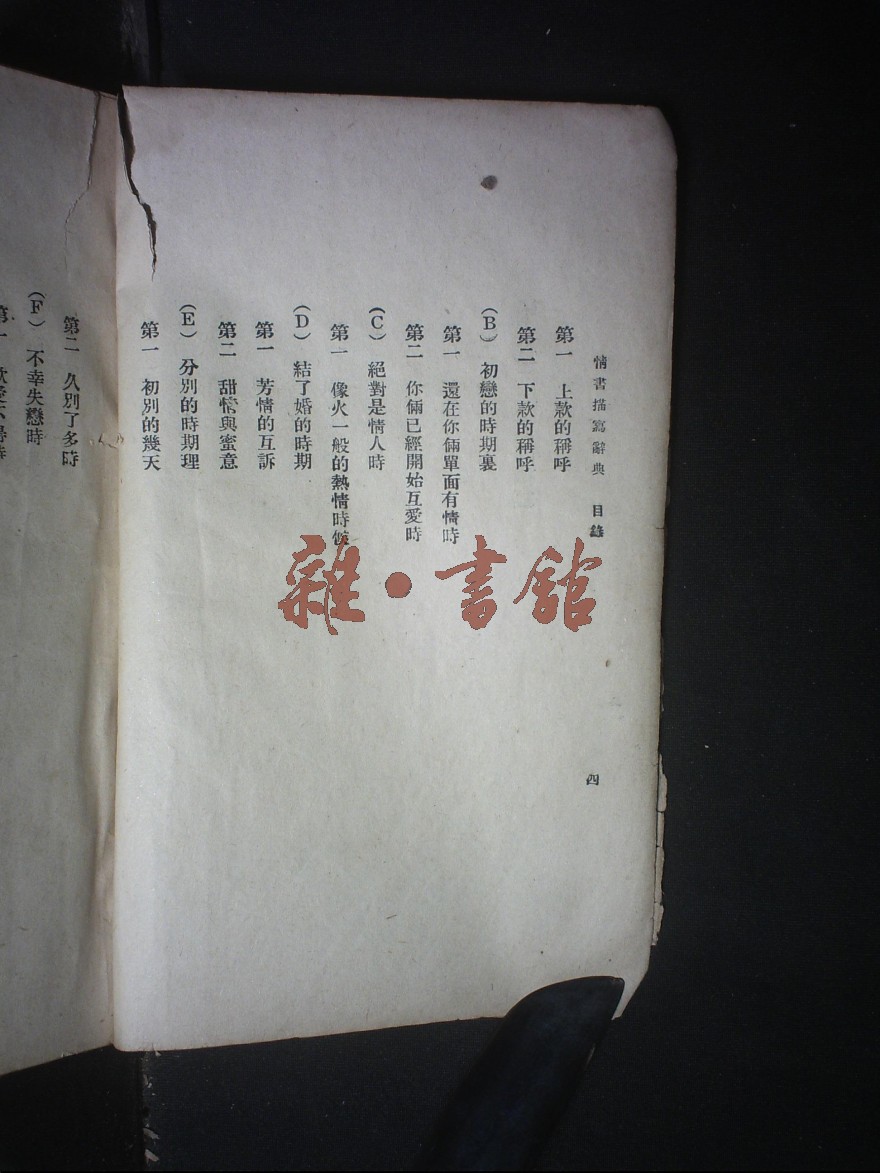 情書描寫辭典 目錄
四
第一 上款的稱呼
第二 下款的稱呼
(B) 初戀的時期裏
第一 還在你倆單面有情時
第二 你倆已經開始互愛時
(C) 絕對是情人時
第一 像火一般的熱情時候
(D) 結了婚的時期
第一 芳情的互訴
第二 甜情與蜜意
(E) 分別的時期理
第一 初別的幾天
第二 久別了多時
(F) 不幸失戀時
第一
雜·書館